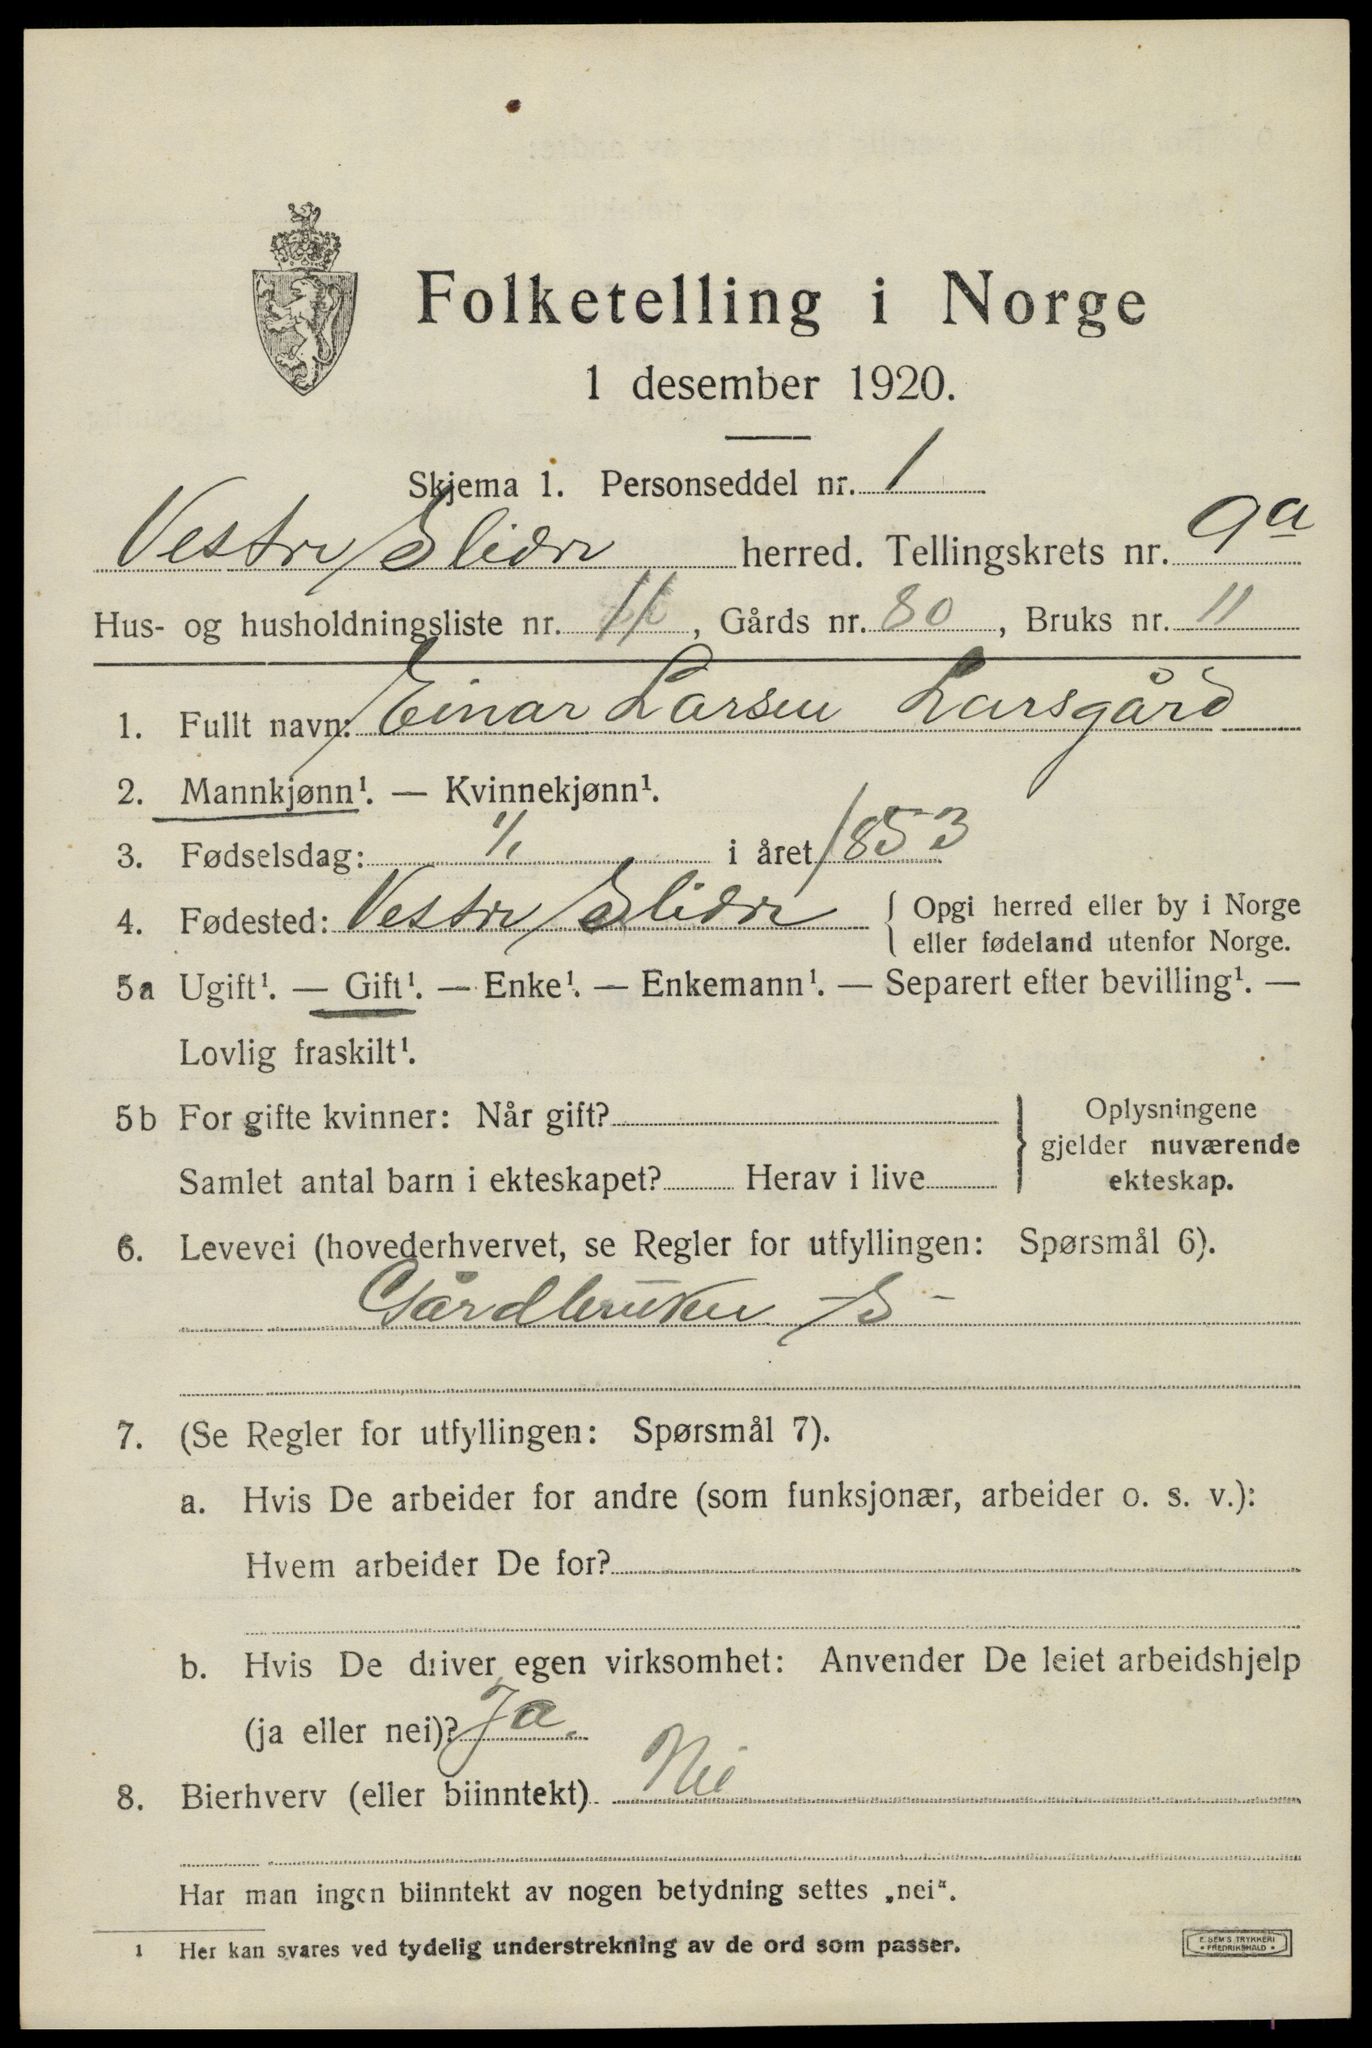 Folketelling i Norge
1 desember 1920.
Skjema 1. Personseddel nr. 1
Vestre Slidre herred. Tellingskrets nr. 9a
Hus- og husholdningsliste nr. 11, Gårds nr. 80, Bruks nr. 11
1. Fullt navn: Einar Larsen Larsgård
2. Mannkjønn¹. — Kvinnekjønn¹.
3. Fødselsdag: 1/1 i året 1853
4. Fødested: Vestre Slidre { Opgi herred eller by i Norge
eller fødeland utenfor Norge.
5a Ugift¹. — Gift¹. — Enke¹. — Enkemann¹. — Separert efter bevilling¹. —
Lovlig fraskilt¹.
5b For gifte kvinner: Når gift? } Oplysningene
gjelder nuværende
Samlet antal barn i ekteskapet? Herav i live ekteskap.
6. Levevei (hovederhvervet, se Regler for utfyllingen: Spørsmål 6).
Gårdbruker -S-
7. (Se Regler for utfyllingen: Spørsmål 7).
a. Hvis De arbeider for andre (som funksjonær, arbeider o. s. v.):
Hvem arbeider De for?
b. Hvis De driver egen virksomhet: Anvender De leiet arbeidshjelp
(ja eller nei)? Ja.
8. Bierhverv (eller biinntekt) Nei
Har man ingen biinntekt av nogen betydning settes „nei“.
1 Her kan svares ved tydelig understrekning av de ord som passer.
E. SEM'S TRYKKERI
• FREDRIKSHALD •